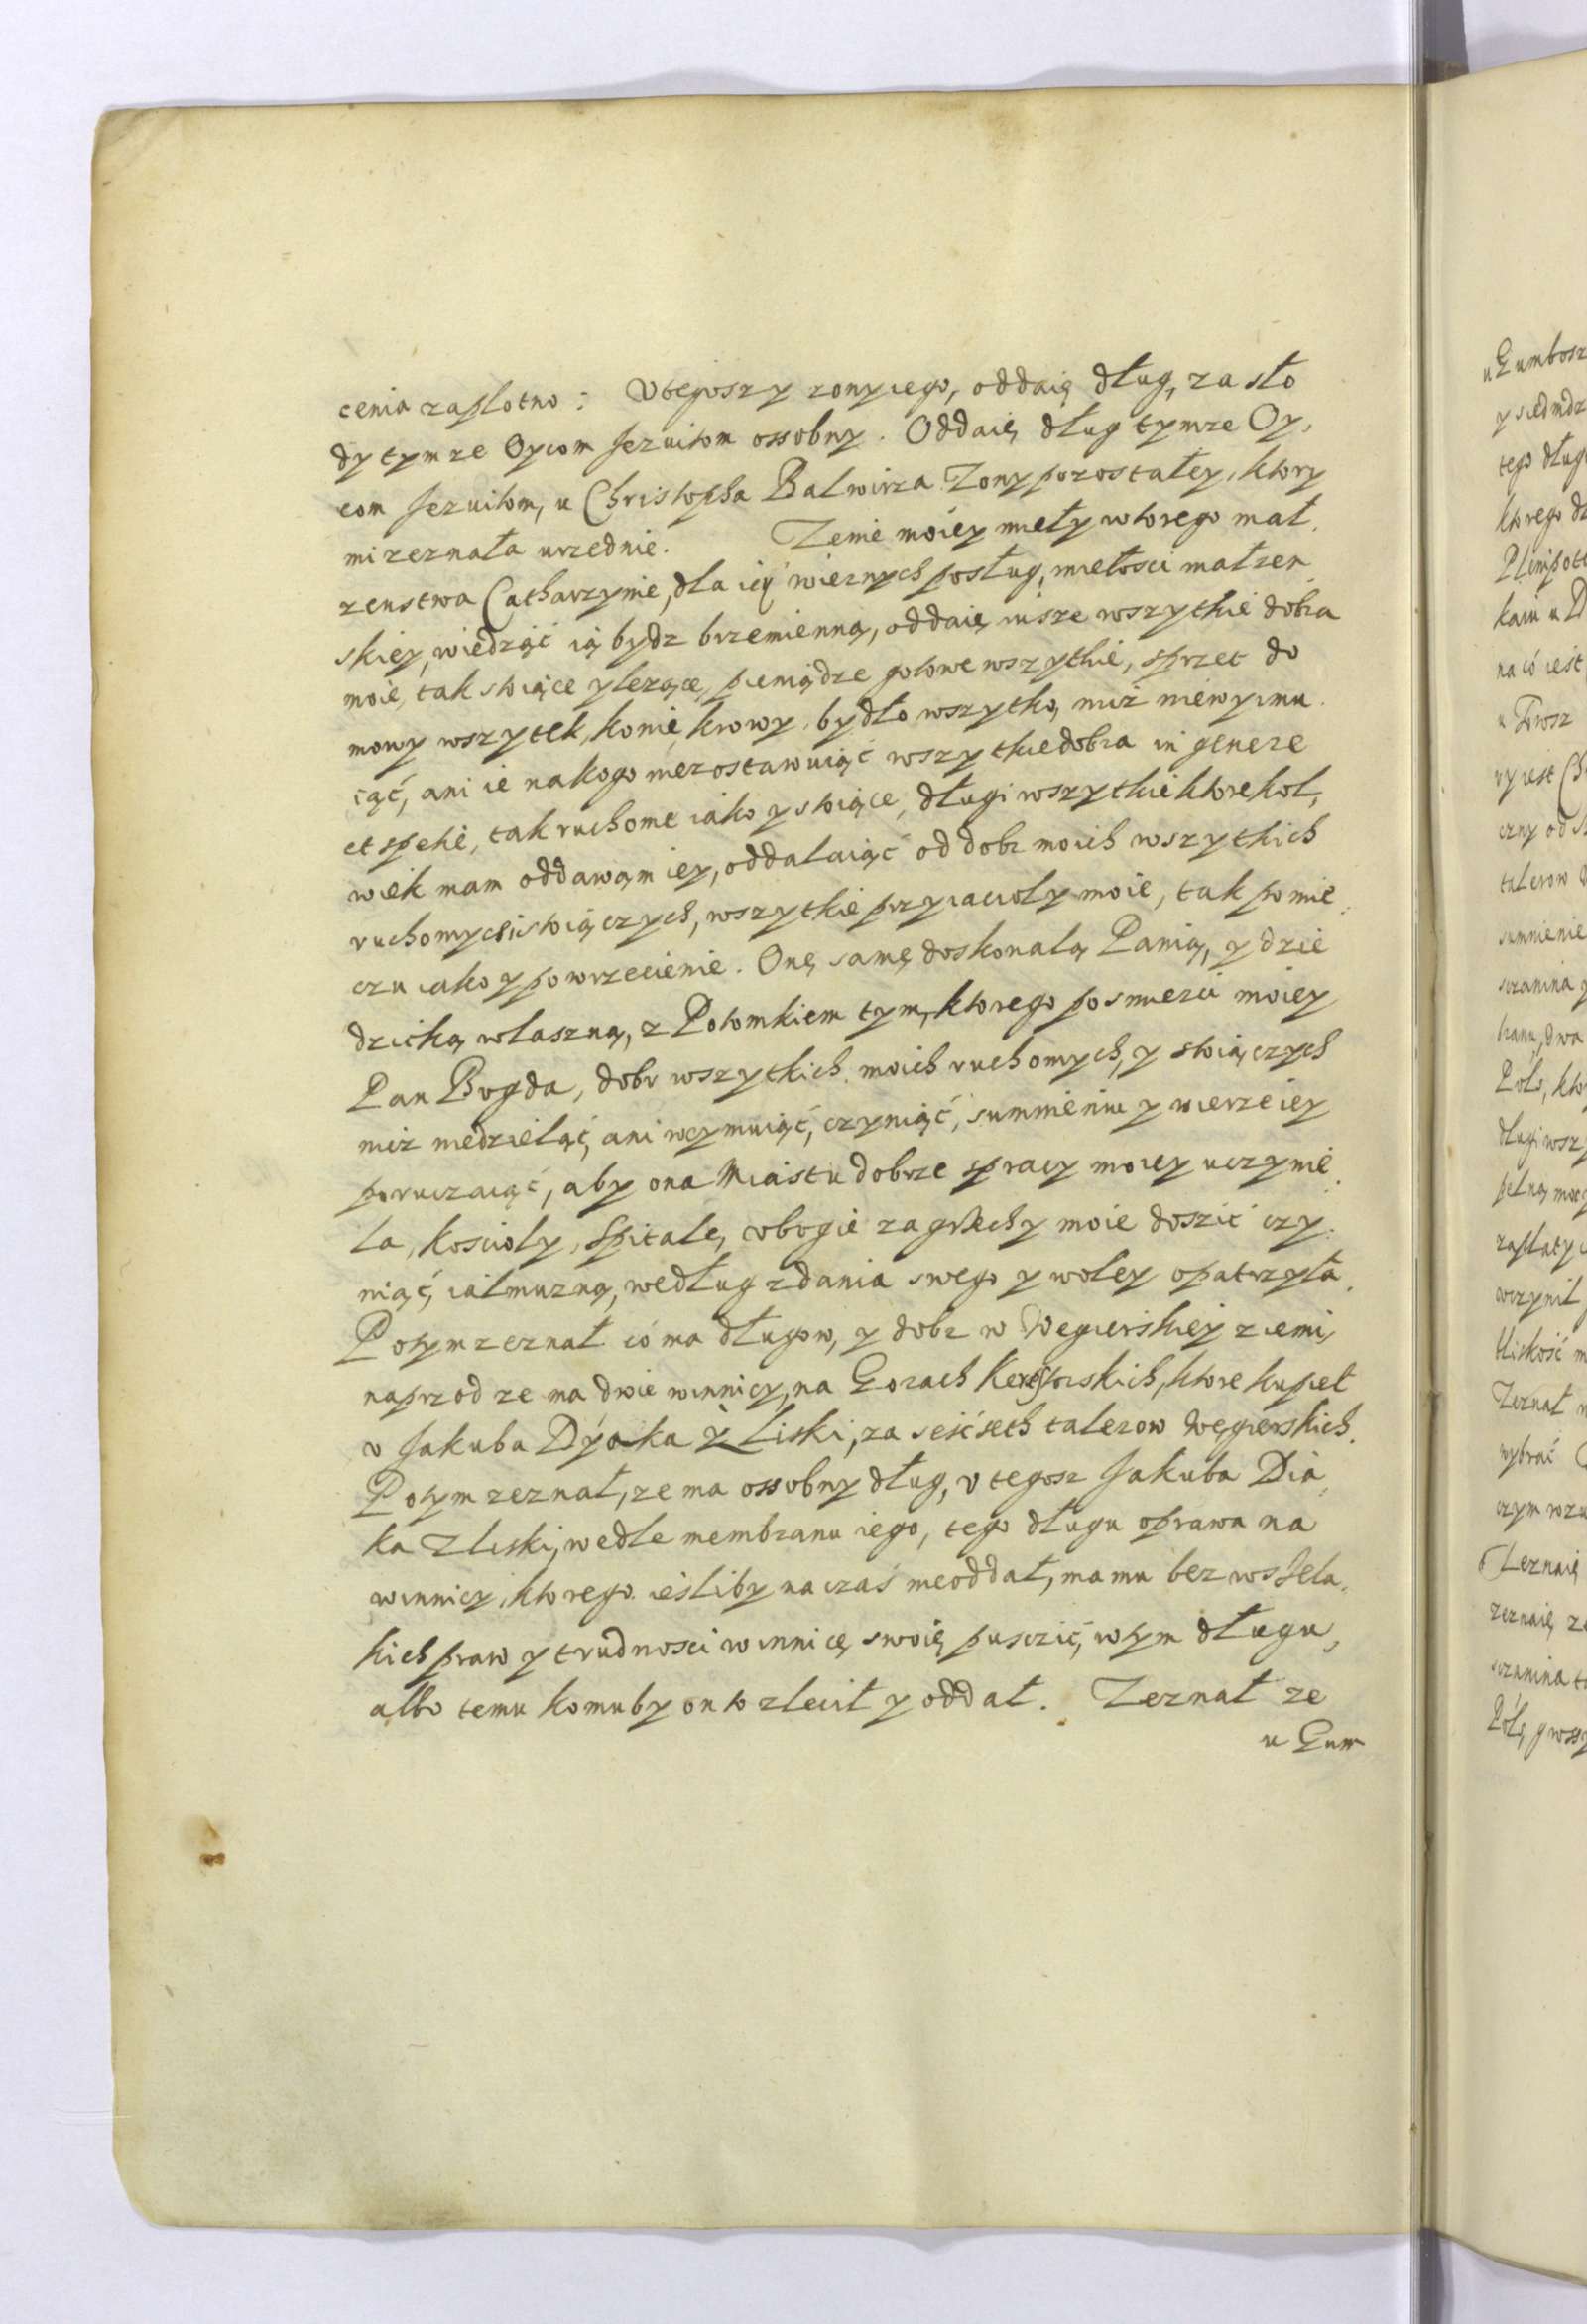 cenia zaplotno : Vtegoszy zony iego, oddaię dług, za sło
dy tymze Oycom Jezuitom ossobny. Oddaię dług tymze Oy,
com Jezuitom, u Christopha Balwirza Zony pozostałey, ktory
mi zeznała urzednie. Zenie moiey miełey wtorego mał,
zenstwa Catharzynie, dla iey wiernych posług, miełosci małzen
skiey, wiedząć ią bydz brzemienną, oddaię iusze wszytkie dobra
moie, tak stoiące y lezące, pieniądze gotowe wszytkie, sprzet do
mowy wszytek, konie, krowy, bydło wszytko, niiz niewyimu
iąć, ani ie nakogo niezostawuiąć wszytkie dobra in genere
et spetie, tak ruchome iako y stoiące, długi wszytkie ktorekol,
wiek mam oddawąm iey, oddalaiąć od dobr moich wszytkich
ruchomych stoiączych, wszytkie przyiacioly moie, tak po mie
czu iako y po wrzecienie. Onę samę doskonalą Panią, y dzie
dziczką wlaszną, z Potomkiem tym, ktorego po smierci moiey
Pan Bog da, dobr wszytkich moich ruchomych, y stoiączych
niiz niedzieląć, ani wymuiąć, czyniąć, sumnieniu y wierze iey
poruczaiąć, aby ona Miastu dobrze spracy moiey uczynie,
la, koscioly, Spitale, vbogie za grzechy moie doszić czy,
niąć, ialmuzną, według zdania swego y woley opatrzyła.
Potym zeznał có ma długow, y dobr w Węgierskiey ziemi,
naprzod ze ma dwie winnicy, na Gorach Kereszturskich, ktore kupieł
v Jakuba Dyaka z Liski, za seśćseth talerow Węgierskich.
Potym zeznał, ze ma ossobny dług, v tegosz Jakuba Dia,
ka Zliski, wedle membranu iego, tego długu oprawa na
winnicy, ktorego iesliby na czaś nieoddał, ma mu bez wsSela,
kich praw y trudnosci winnicę swoię pusczić, w tym długu,
albo temu komuby on to zlecił y oddał. Zeznał ze
u Gum